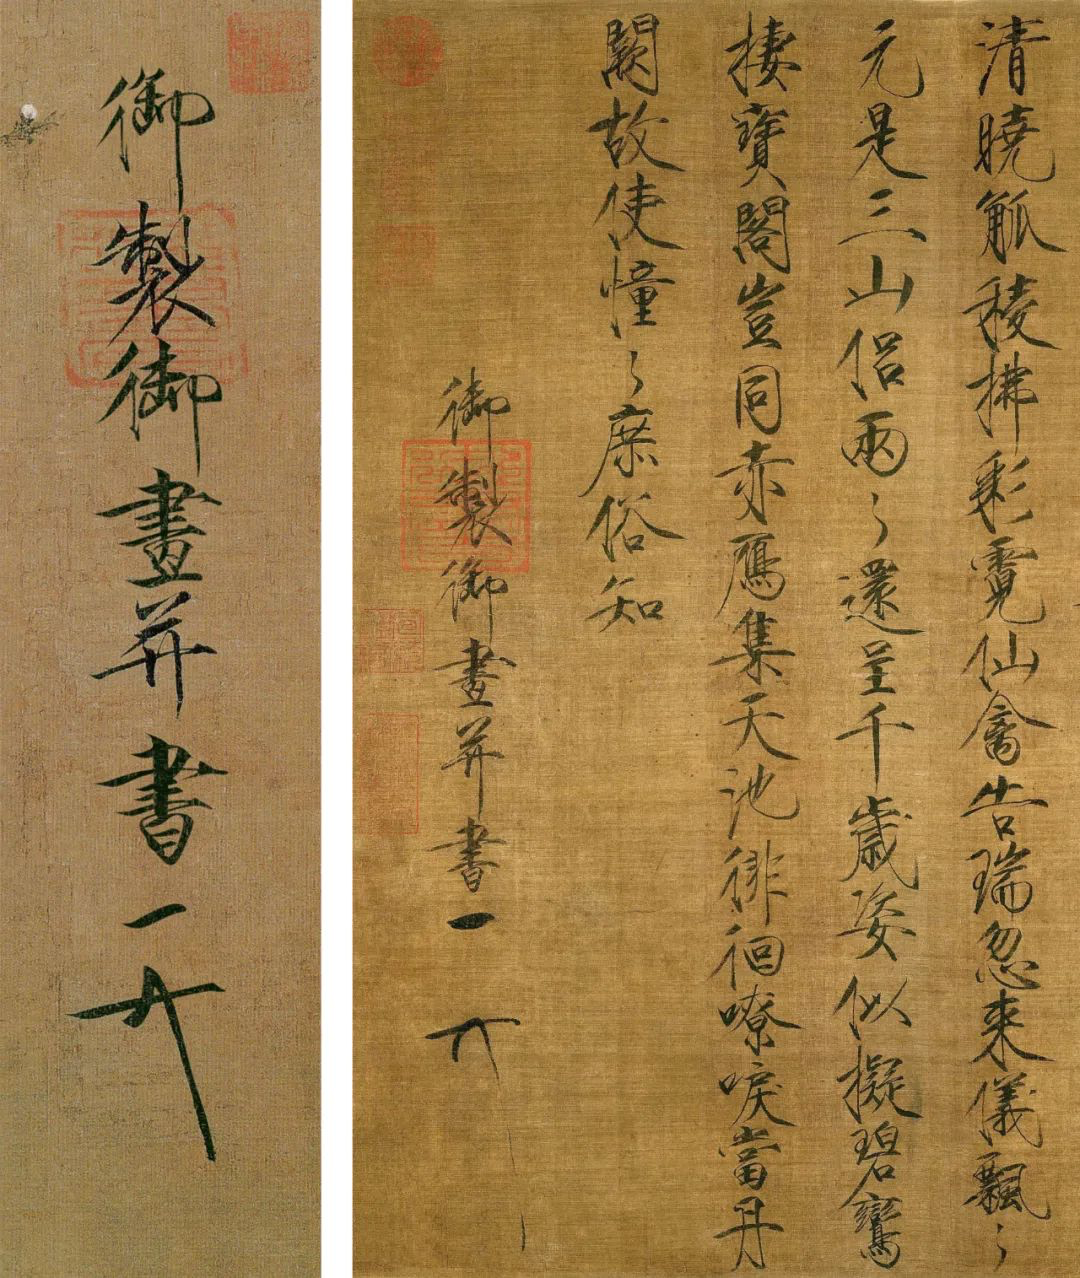 清曉觚稜拂彩霓仙禽告瑞忽来儀飄々
元是三山侣兩々還呈千歲姿似擬碧鸞
棲寶閣豈同赤鴈集天池徘徊嘹唳當丹
闕故使憧々庶俗知
御製御畫并書
御製御畫并書